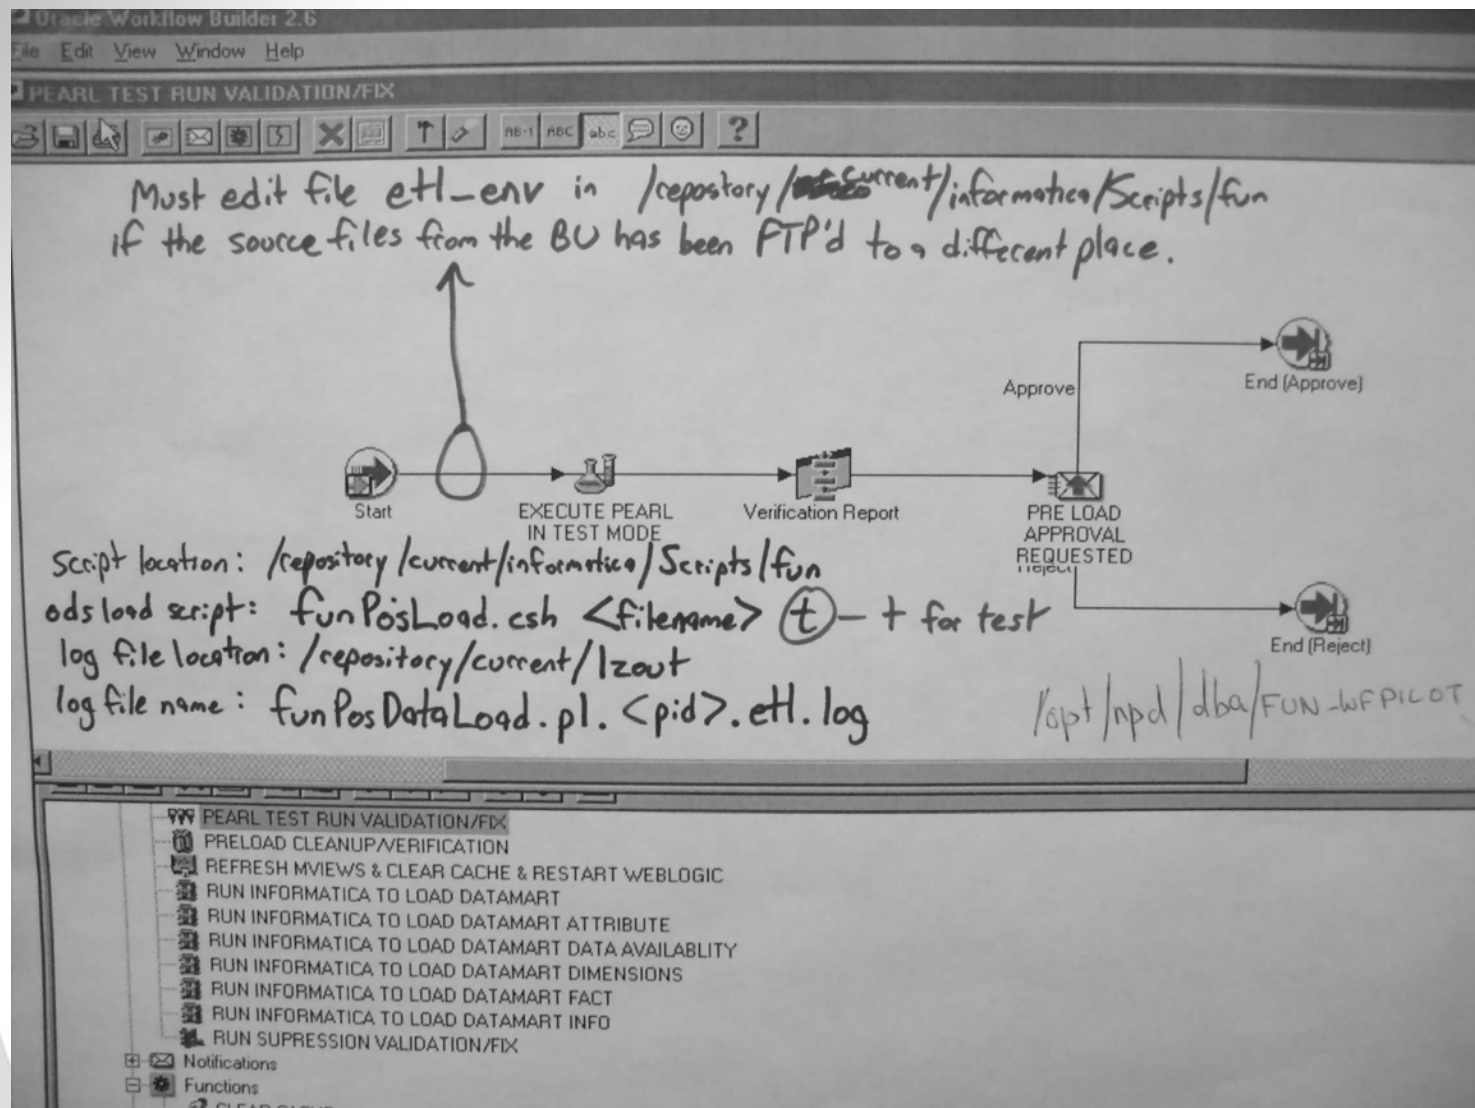 Oracle Workflow Builder 2.6
File Edit View Window Help
PEARL TEST RUN VALIDATION/FIX
AB-1 ABC abc ?
Must edit file etl_env in /repostory/current/informatica/Scripts/fun
if the source files from the BU has been FTP'd to a different place.
Approve
End (Approve)
Start
EXECUTE PEARL
IN TEST MODE
Verification Report
PRE LOAD
APPROVAL
REQUESTED
Reject
End (Reject)
Script location: /repository/current/informatica/Scripts/fun
ods load script: funPosLoad.csh <filename> t - t for test
log file location: /repository/current/lzout
log file name: funPosDataLoad.pl.<pid>.etl.log
/opt/npd/dba/FUN-WFPILOT
PEARL TEST RUN VALIDATION/FIX
PRELOAD CLEANUP/VERIFICATION
REFRESH MVIEWS & CLEAR CACHE & RESTART WEBLOGIC
RUN INFORMATICA TO LOAD DATAMART
RUN INFORMATICA TO LOAD DATAMART ATTRIBUTE
RUN INFORMATICA TO LOAD DATAMART DATA AVAILABLITY
RUN INFORMATICA TO LOAD DATAMART DIMENSIONS
RUN INFORMATICA TO LOAD DATAMART FACT
RUN INFORMATICA TO LOAD DATAMART INFO
RUN SUPRESSION VALIDATION/FIX
Notifications
Functions
CLEAR CACHE